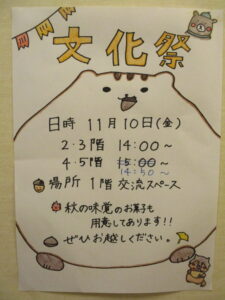 文化祭
日時 11月10日(金)
2・3階 14:00～
4・5階 15:00～
14:50～
場所 1階 交流スペース
秋の味覚のお菓子も
用意してあります!!
ぜひお越しください。